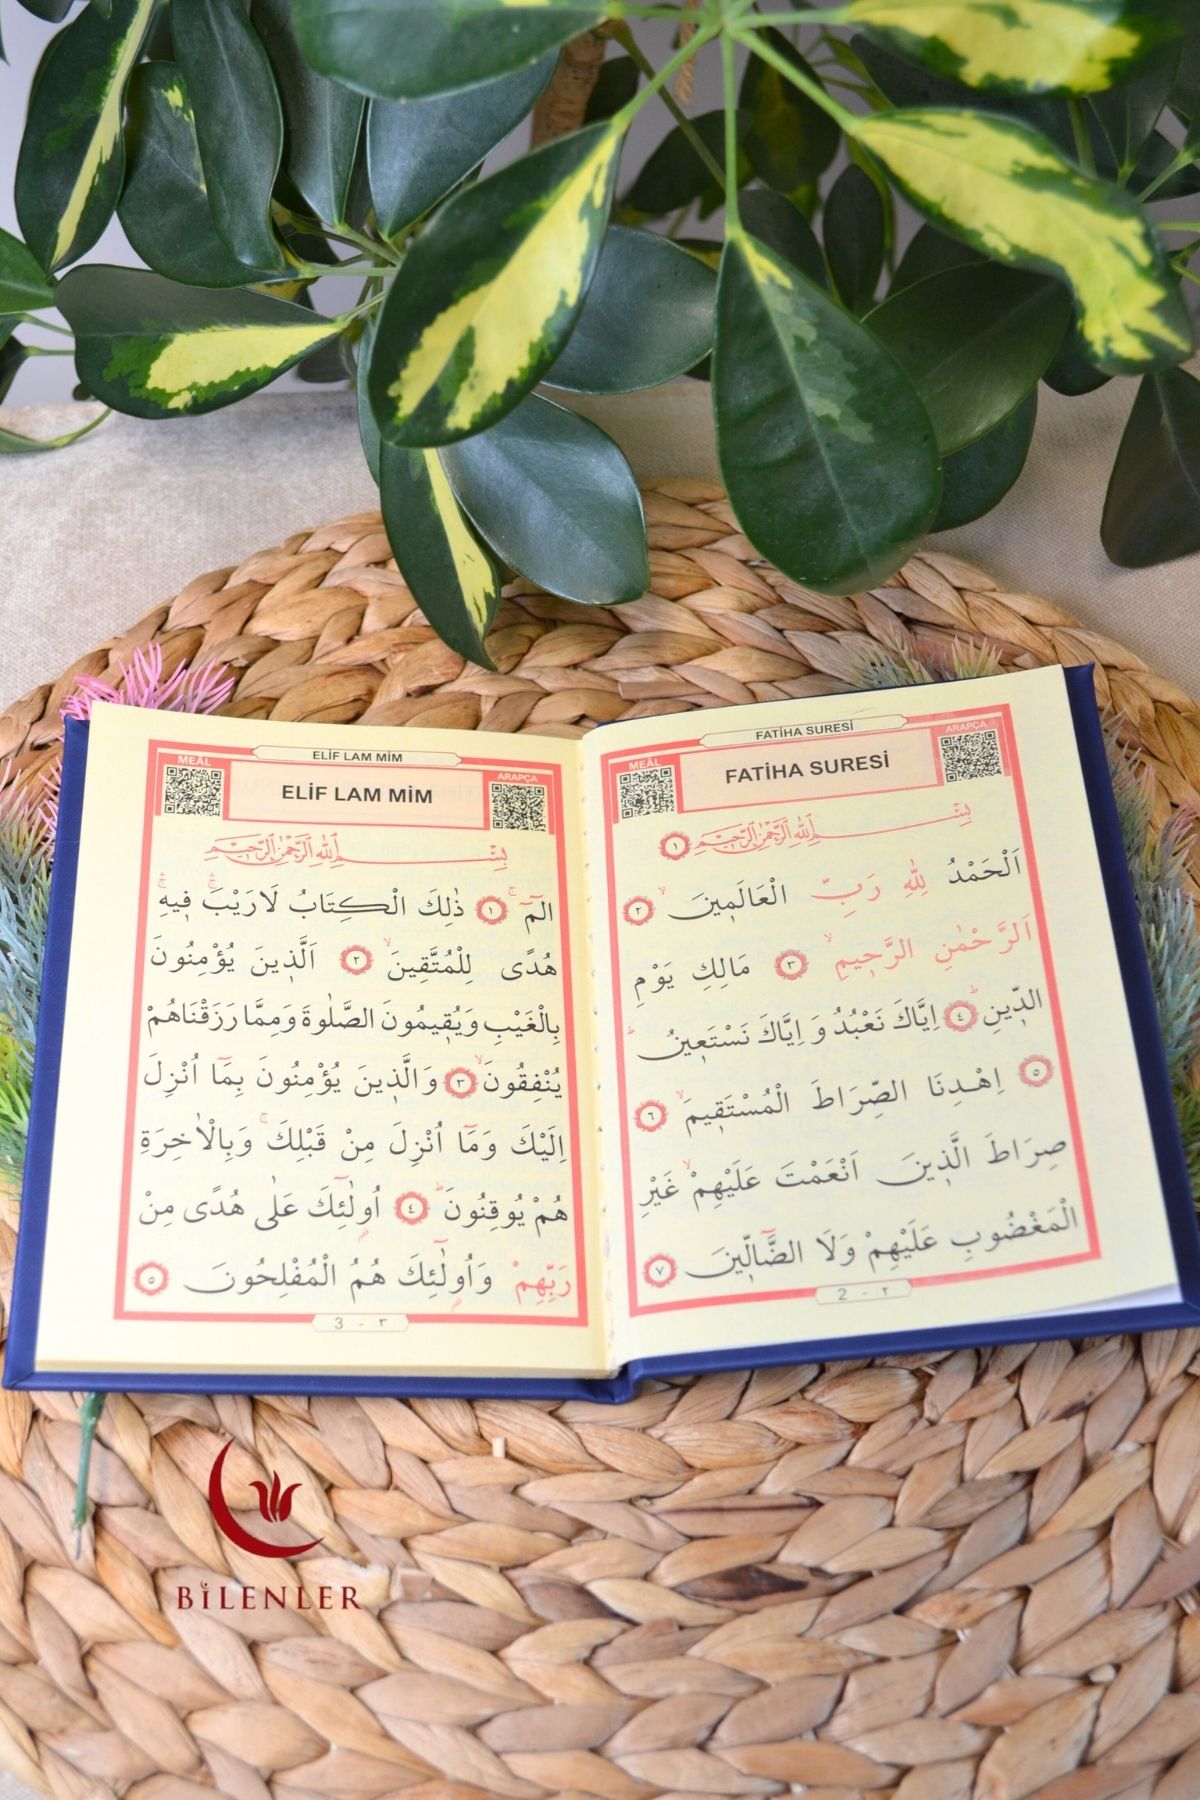 FATİHA SURESİ
MEÂL
FATİHA SURESİ
ARAPÇA
بِسْمِ اللّٰهِ الرَّحْمٰنِ الرَّحٖيمِ ١
اَلْحَمْدُ لِلّٰهِ رَبِّ الْعَالَمٖينَۙ ٢
اَلرَّحْمٰنِ الرَّحٖيمِۙ ٣ مَالِكِ يَوْمِ
الدّٖينِؕ ٤ اِيَّاكَ نَعْبُدُ وَ اِيَّاكَ نَسْتَعٖينُؕ
٥ اِهْدِنَا الصِّرَاطَ الْمُسْتَقٖيمَۙ ٦
صِرَاطَ الَّذٖينَ اَنْعَمْتَ عَلَيْهِمْۙ غَيْرِ
الْمَغْضُوبِ عَلَيْهِمْ وَلَا الضَّٓالّٖينَ ٧
2 - ٢
ELİF LAM MİM
MEÂL
ELİF LAM MİM
ARAPÇA
بِسْمِ اللّٰهِ الرَّحْمٰنِ الرَّحٖيمِ
الٓمٓۚ ١ ذٰلِكَ الْكِتَابُ لَارَيْبَۚ فٖيهِۚ
هُدًى لِلْمُتَّقٖينَۙ ٢ اَلَّذٖينَ يُؤْمِنُونَ
بِالْغَيْبِ وَيُقٖيمُونَ الصَّلٰوةَ وَمِمَّا رَزَقْنَاهُمْ
يُنْفِقُونَۙ ٣ وَالَّذٖينَ يُؤْمِنُونَ بِمَٓا اُنْزِلَ
اِلَيْكَ وَمَٓا اُنْزِلَ مِنْ قَبْلِكَۚ وَبِالْاٰخِرَةِ
هُمْ يُوقِنُونَؕ ٤ اُولٰٓئِكَ عَلٰى هُدًى مِنْ
رَبِّهِمْ وَاُولٰٓئِكَ هُمُ الْمُفْلِحُونَ ٥
3 - ٣
BİLENLER